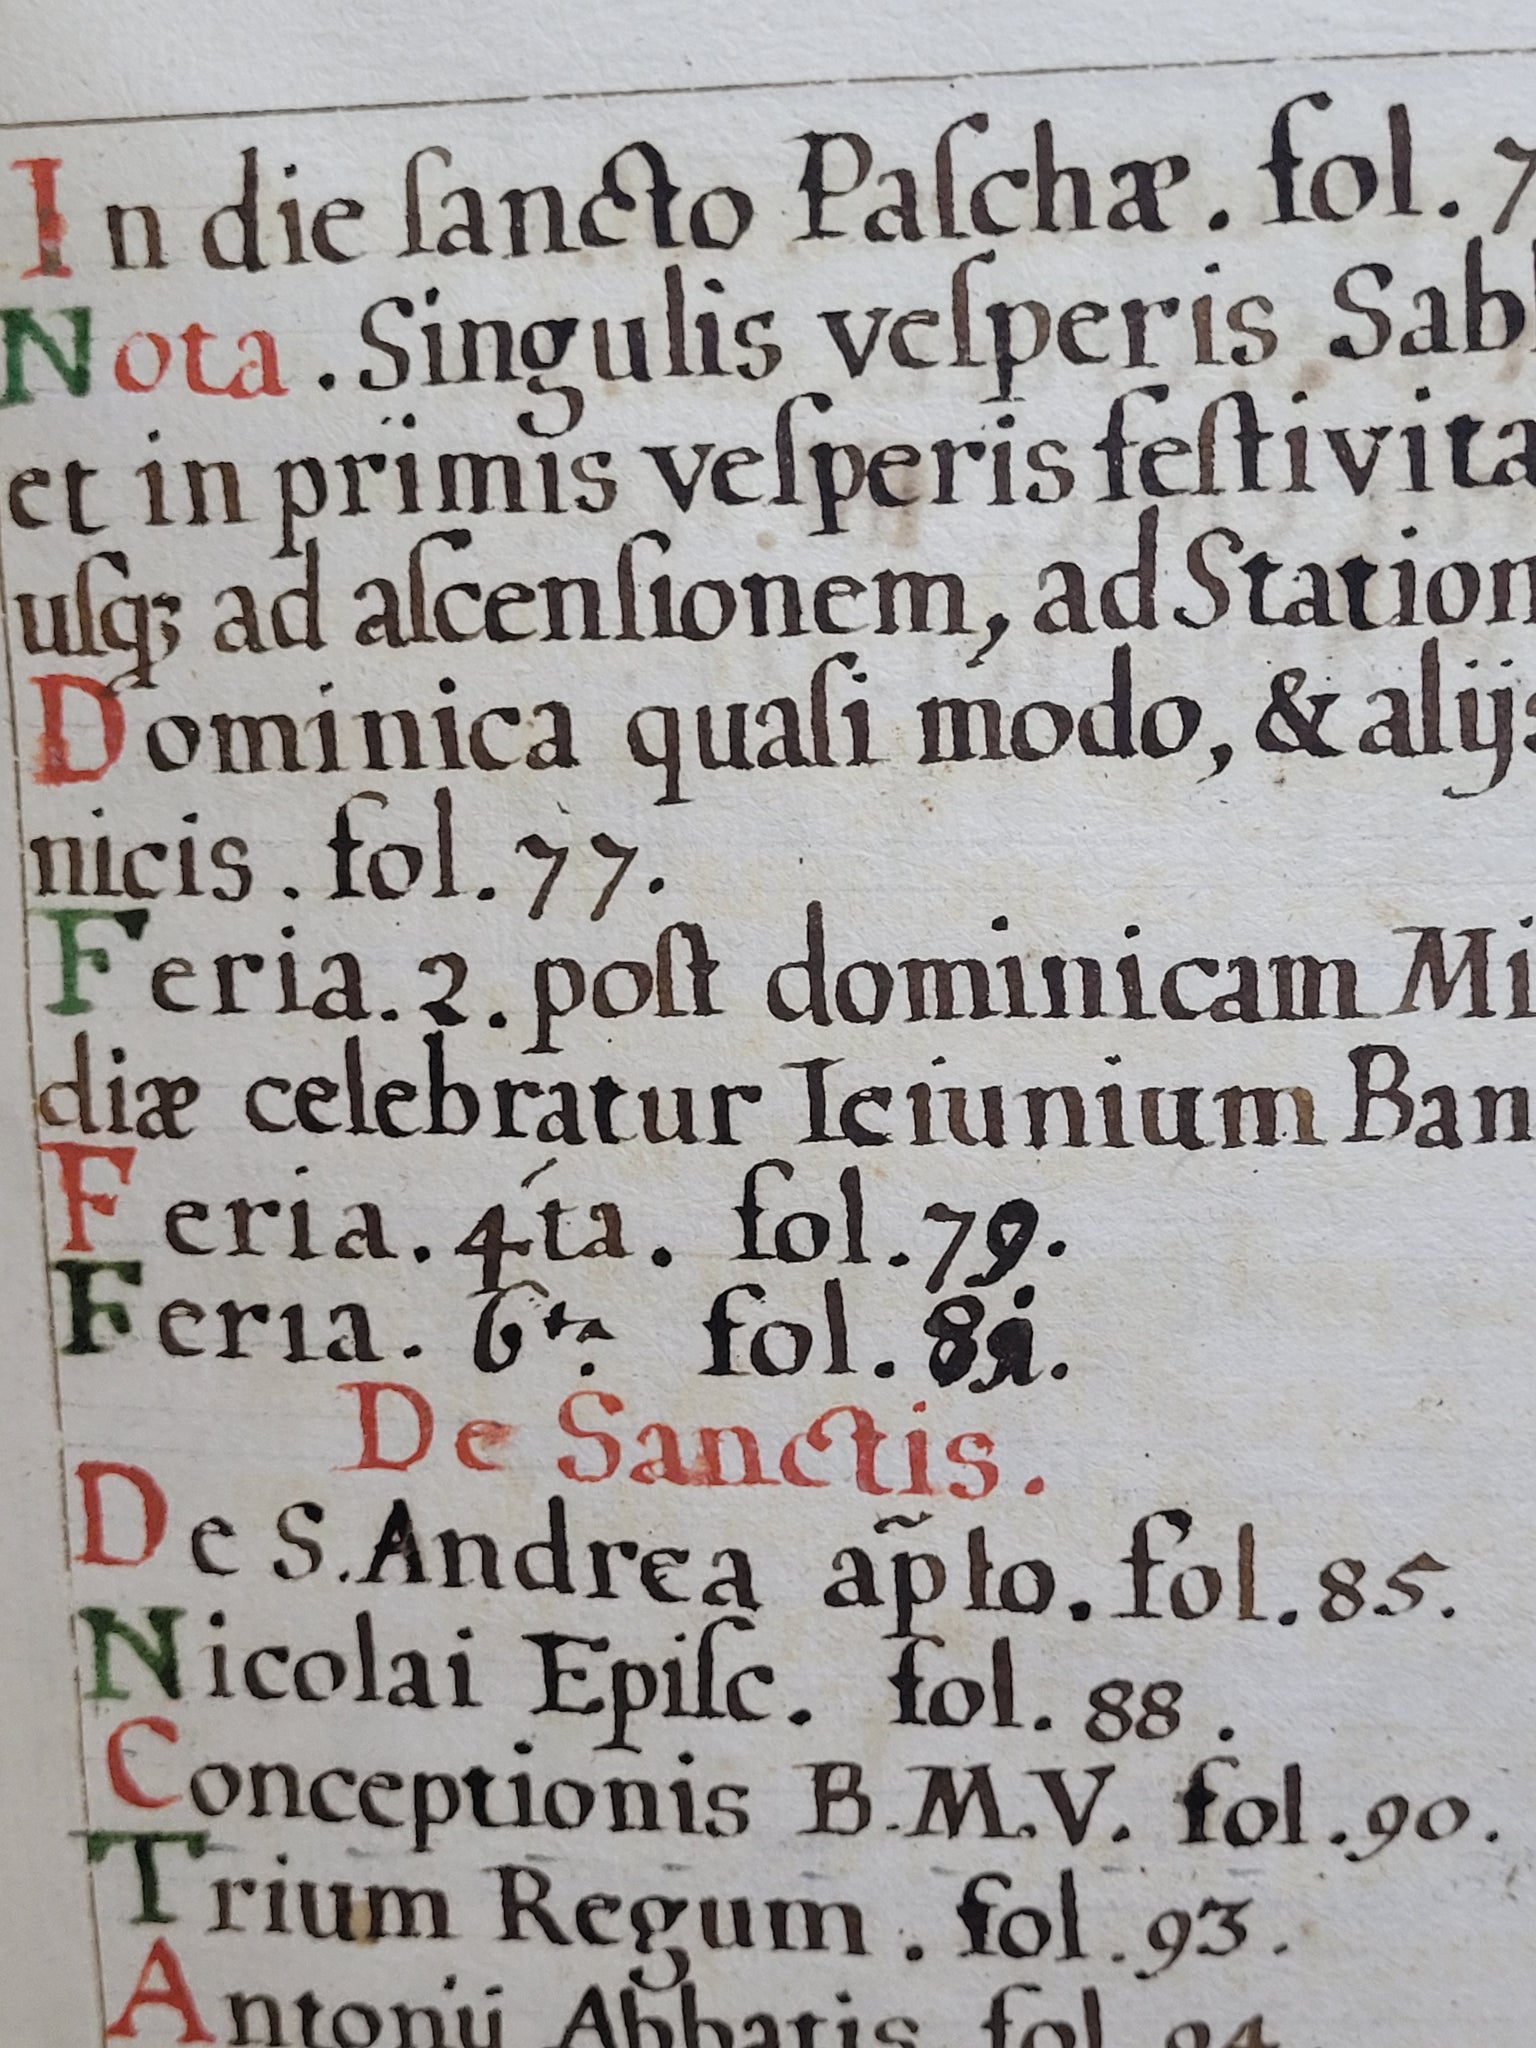 In die ſancto Paſchæ. fol. 7
Nota. Singulis veſperis Sab
et in primis veſperis feſtivita
uſq; ad aſcenſionem, ad Station
Dominica quaſi modo, & alijs
nicis. fol. 77.
Feria. 2. poſt dominicam Mi
diæ celebratur Ieiunium Ban
Feria. 4ta. fol. 79.
Feria. 6ta. fol. 81.
De Sanctis.
De S. Andrea ap̃lo. fol. 85.
Nicolai Epiſc. fol. 88.
Conceptionis B.M.V. fol. 90.
Trium Regum. fol. 93.
Antonij Abbatis fol. 94.